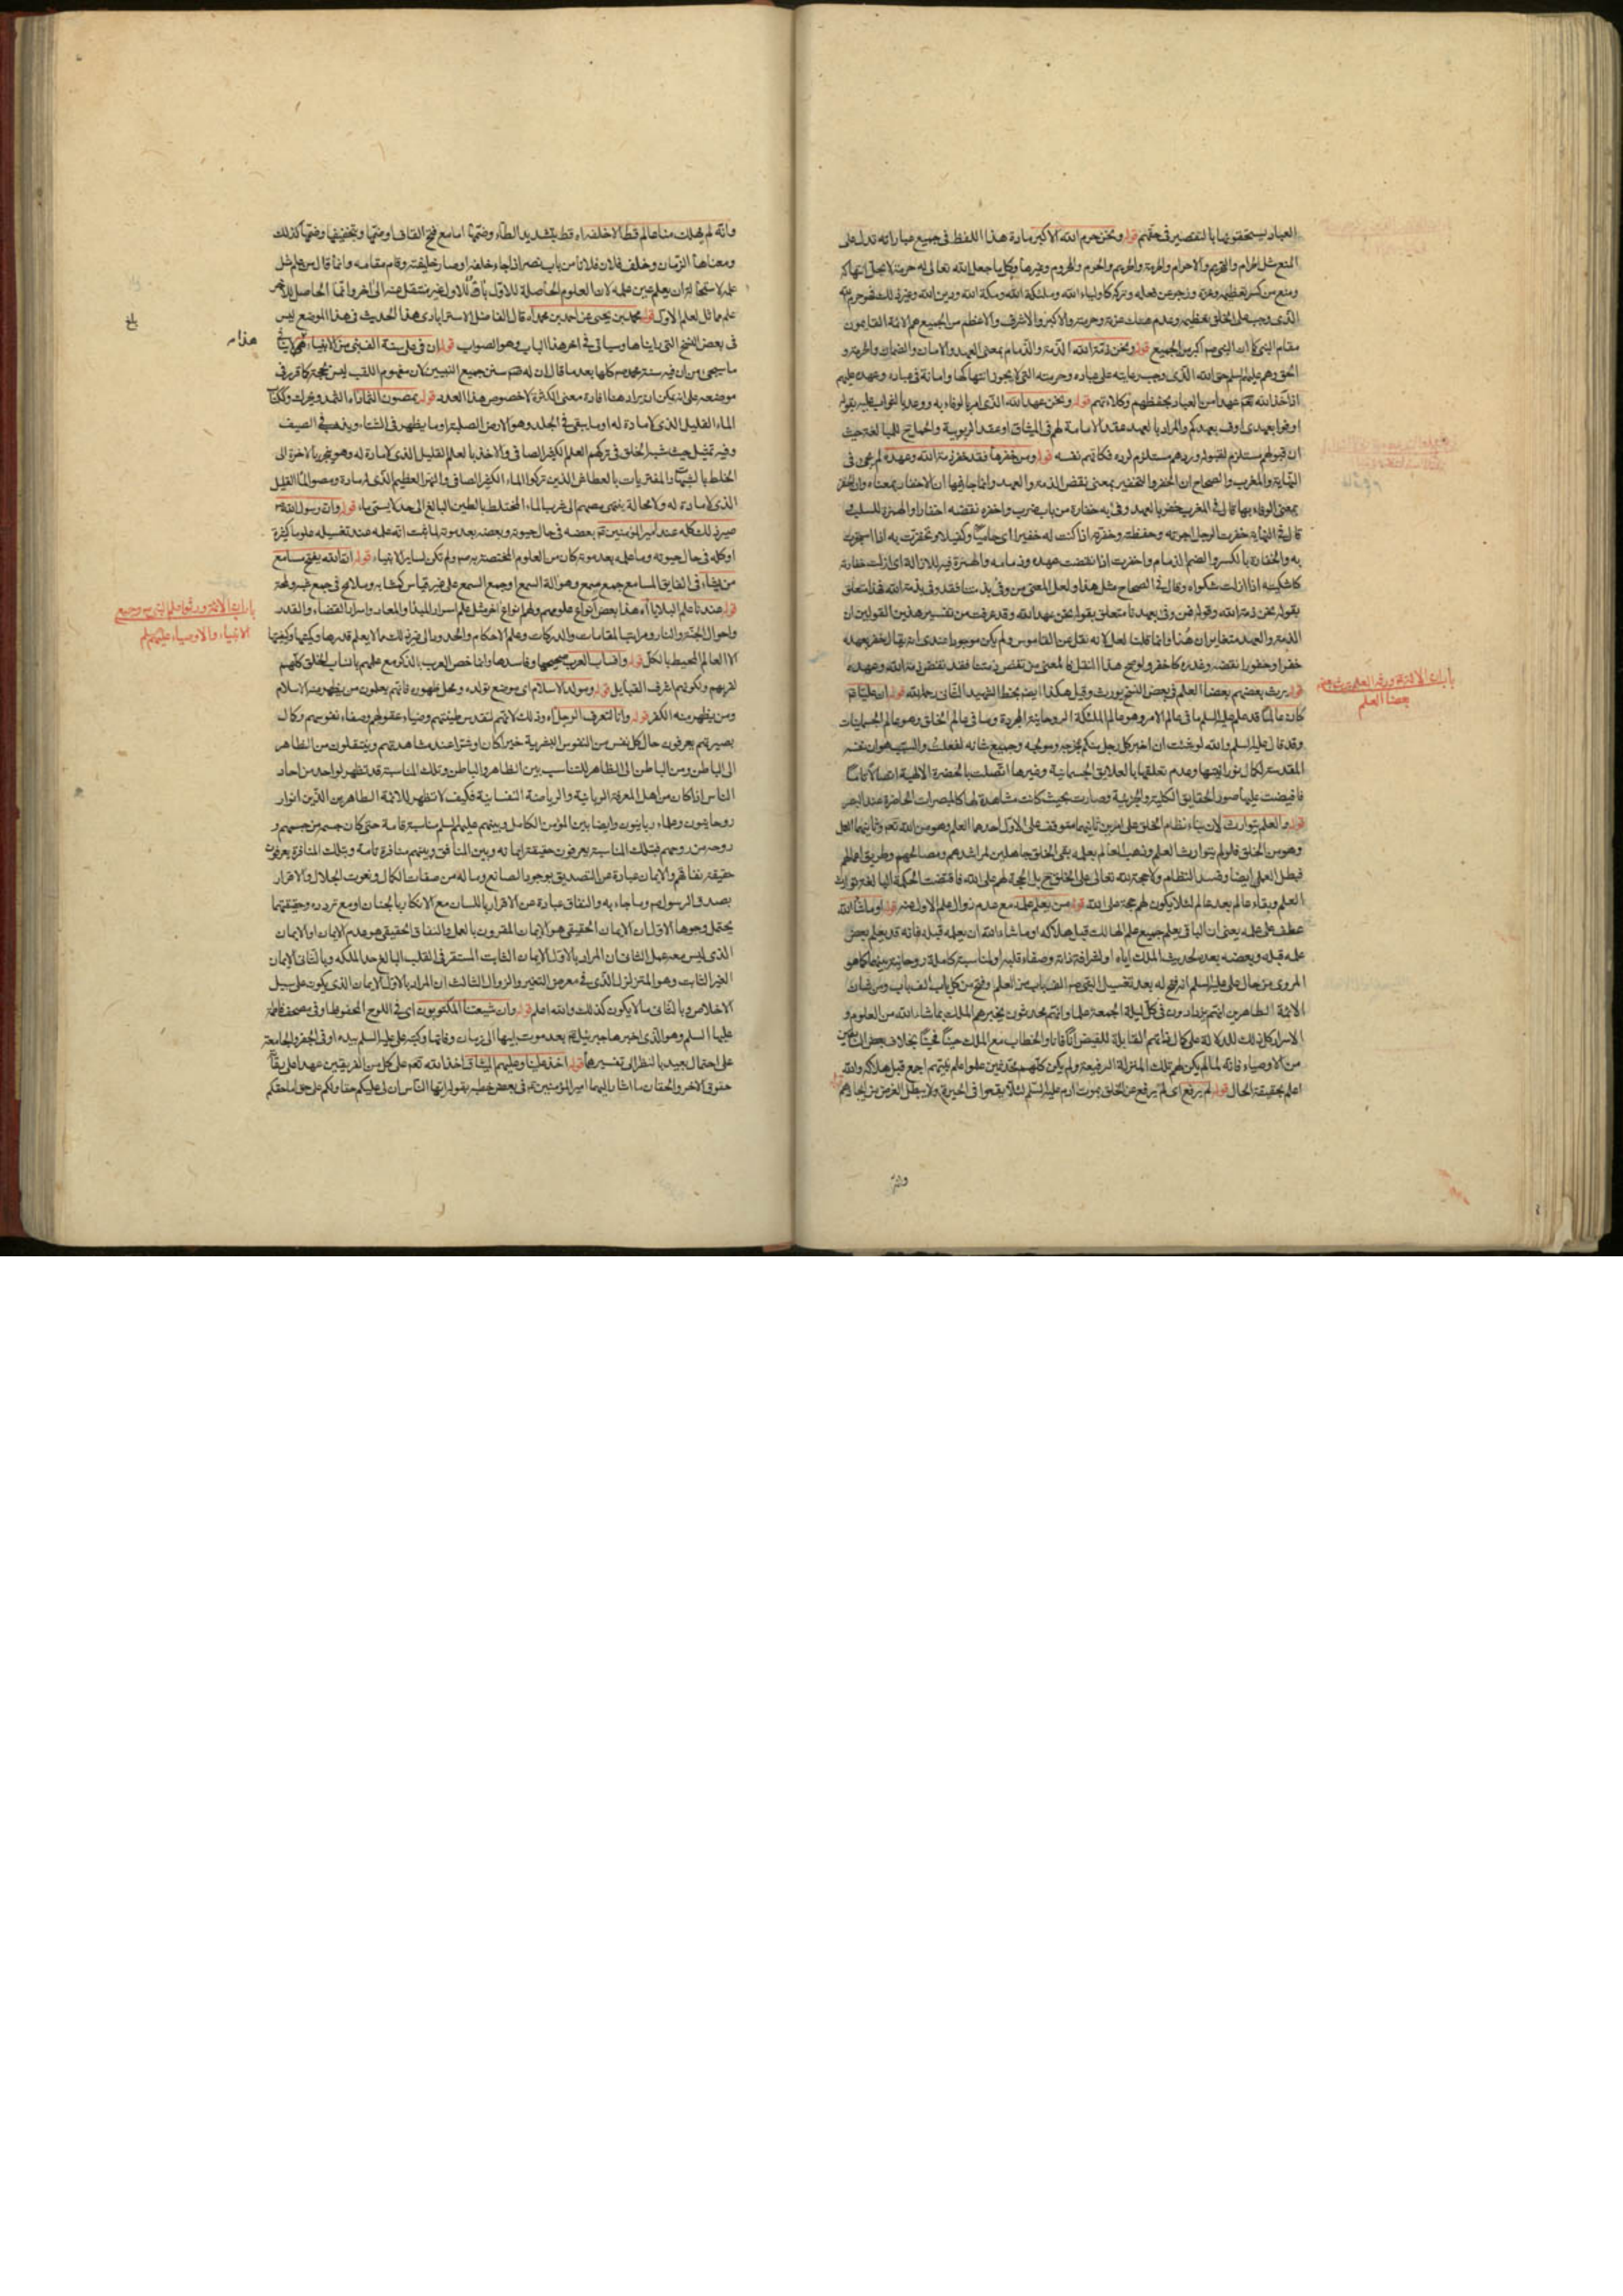 العباد يستحقونها بالتقصير في حقهم قوله ونحن حرم الله الاكبر مادة هذا اللفظ في جميع عباراته تدل على
المنع مثل الحرام والتحريم والاحرام والحرمة والحريم والحرم والمحروم وغيرها وكل ما جعل الله تعالى له حرمة لا يحل انتهاكه
الذى وجب على الخلق تعظيمه وعدم هتك عزته وحرمته والاكبر والاشرف والاعظم من الجميع هم الائمة القايمون
مقام النبي كما ان النبي ص اكبر من الجميع قوله ونحن ذمة الله الذمة والذمام بمعنى العهد والامان والضمان والحرمة و
الحق وهم عليهم السلم حق الله الذى وجب رعايته على عباده وحرمته التى لا يجوز انتهاكها وامانة في عباده وعهده عليهم
اذا خذ الله تعم عهدا من العباد بحفظهم وكلاءتهم قوله ونحن عهد الله الذى امر بالوفاء به ووعد بالثواب عليه بقوله
اوفوا بعهدى اوف بعهدكم والمراد بالعهد عقد الامامة لهم في الميثاق او عقد الربوبية والحمل للمبالغة حيث
ان قبولهم مستلزم لقبوله وردهم مستلزم لرده فكانهم نفسه قوله ومن خفرها فقد خفر ذمة الله وعهده لم يجئ في
النهاية والمغرب والصحاح ان الخفر والتخفير بمعنى نقض الذمة والعهد وانما جاء فيها ان الاخفار بمعناه وان الخفر
بمعنى الوفاء بها قال في المغرب خفر بالعهد وفى به خفارة من باب ضرب واخفره نقضه اخفارا والهمزة للسلب
قال في النهاية خفرت الرجل اجرته وحفظته وخفرته اذا كنت له خفيرا اى حاميا وكفيلا وتخفرت به اذا استجرت
به والخفارة بالكسر والضم الذمام واخفرت اذا نقضت عهده وذمامه والهمزة فيه للازالة اى ازلت خفارته
كاشكيته اذا ازلت شكواه وقال في الصحاح مثل هذا ولعل المعنى من وفى بذمتنا فقد وفى بذمة الله فهذا متعلق
بقوله نحن ذمة الله وقوله فمن وفى بعهدنا متعلق بقوله نحن عهد الله وقد عرفت من تفسير هذين القولين ان
الذمة والعهد متغايران هنا وانما قلنا لعل لانه نقل عن القاموس ولم يكن موجودا عندى انه يقال خفر بعهده
خفرا وخفورا نقضه وغدره كاخفره ولو صح هذا النقل فالمعنى من نقض ذمتنا فقد نقض ذمة الله وعهده
قوله يرث بعضهم بعضا العلم في بعض النسخ يورث وقيل هكذا ايضم بخط الشهيد الثانى رحمه الله قوله ان عليا ع
كان عالما قد علم عليه السلم ما في عالم الامر وهو عالم الملئكة الروحانية المجردة وما في عالم الخلق وهو عالم الجسمانيات
وقد قال عليه السلم والله لو شئت ان اخبر كل رجل منكم بمخرجه ومولجه وجميع شانه لفعلت والسبب هو ان نفسه
المقدسة لكمال نورانيتها وعدم تعلقها بالعلايق الجسمانية وغيرها اتصلت بالحضرة الالهية اتصالا تاما
فافيضت عليها صور الحقايق الكلية والجزئية وصارت بحيث كانت مشاهدة لها كالمبصرات الحاضرة عند البصر
قوله والعلم يتوارث لان بناء نظام الخلق على امرين ثانيهما متوقف على الاول احدهما العلم وهو من الله تعم وثانيهما العمل
وهو من الخلق فلو لم يتوارث العلم وذهب العالم بعلمه بقى الخلق جاهلين لمراشدهم ومصالحهم وطريق اعمالهم
فبطل العمل ايضا وفسد النظام ولا حجة لله تعالى على الخلق ح بل الحجة لهم على الله فاقتضت الحكمة البالغة توارث
العلم وبقاء عالم بعد عالم لئلا يكون لهم حجة على الله قوله من يعلم علمه مع عدم زوال علم الاول عنه قوله او ما شاء الله
عطف على علمه يعنى ان الباقى يعلم جميع علم الهالك قبل هلاكه او ما شاء الله ان يعلمه قبله فانه قد يعلم بعض
علمه قبله وبعضه بعده لحديث الملك اياه او لشرافة ذاته وصفاء قلبه او لمناسبة كاملة روحانية بينهما كما هو
المروى من حال على عليه السلم انه فتح له بعد تغسيل النبي ص الف باب من العلم وفتح من كل باب الف باب ومن شان
الائمة الطاهرين انهم يزدادون في كل ليلة الجمعة علما وانهم محدثون يخبرهم الملك بما شاء الله من العلوم و
الاسرار كل ذلك للدلالة على كمال ذاتهم القابلة للفيض آنا فآنا والخطاب مع الملك حينا فحينا بخلاف بعض السابقين
من الاوصياء فانه لما لم يكن لهم تلك المنزلة الرفيعة ولم يكن كلهم محدثين علموا علم نبيهم اجمع قبل هلاكه والله
اعلم بحقيقة الحال قوله لم يرفع اى لم يرفع عن الخلق بموت ادم عليه السلم لئلا يقعوا في الحيرة ولا يبطل الغرض من ايجادهم
باب ان الائمة ورثة العلم يرث بعضهم
بعضا العلم
وانه
وانه لم يهلك منا عالم قط الا خلفه اه قط بتشديد الطاء وضمها اما مع فتح القاف او ضمها وبتخفيفها وضمها كذلك
ومعناها الزمان وخلف فلان فلانا من باب نصر اذا جاء خلفه او صار خليفته وقام مقامه وانما قال من علم مثل
علمه لاستحالة ان يعلم عين علمه لان العلوم الحاصلة للاول باق للاول غير منتقل عنه الى اخر وانما الحاصل للاخر
علم مماثل لعلم الاول قوله محمد بن يحيى عن احمد بن محمد اه قال الفاضل الاسترابادى هذا الحديث في هذا الموضع ليس
فى بعض النسخ التى رايناها وسياتى في اخر هذا الباب وهو الصواب قوله ان في على سنة الف نبي من الانبياء
هذا م
بلغ
موضعه على انه يمكن ان يراد هنا افادة معنى الكثرة لا خصوص هذا العدد قوله يمصون الثماد اه الثمد ويحرك وككتاب
الماء القليل الذى لا مادة له او ما يبقى في الجلد وهو الارض الصلبة او ما يظهر في الشتاء ويذهب في الصيف
وفيه تمثيل حيث شبه الخلق في تركهم العلم الكثير الصافى والاخذ بالعلم القليل الذى لا مادة له وهو ينجر بالاخرة الى
الخلط بالشبهات والمفتريات بالعطاش الذين تركوا الماء الكثير الصافى والنهر العظيم الذى له مادة ومصوا الماء القليل
الذى لا مادة له ولا محالة ينتهى مصهم الى شرب الماء المختلط بالطين البالغ الى حد لا يسمى ماء قوله وان رسول الله ص
صير ذلك كله عند امير المؤمنين ع بعضه في حال حيوته وبعضه بعد موته لما ثبت انه علمه عند تغسيله علوما كثيرة
او كله في حال حيوته وما علمه بعد موته كان من العلوم المختصة به ص ولم تكن لساير الانبياء قوله ان الله يفتح مسامع
من يشاء في الفايق المسامع جمع مسمع وهو آلة السمع او جمع السمع على غير قياس كمشابه وملامح في جمع شبه ولمحة
قوله عندنا علم البلايا اه هذا بعض انواع علومهم ولهم انواع اخر مثل علم اسرار المبدأ والمعاد واسرار القضاء والقدر
واحوال الجنة والنار ومراتب المقامات والدركات وعلم الاحكام والحدود الى غير ذلك مما لا يعلم قدرها وكميتها وكيفيتها
الا العالم المحيط بالكل قوله وانساب العرب صحيحها وفاسدها وانما خص العرب بالذكر مع علمهم بانساب الخلق كلهم
لقربهم ولكونهم اشرف القبايل قوله ومولد الاسلام اى موضع تولده ومحل ظهوره فانهم يعلمون من يظهر منه الاسلام
ومن يظهر منه الكفر قوله وانا لنعرف الرجل اه وذلك لانهم لتقدس طينتهم وضياء عقولهم وصفاء نفوسهم وكمال
بصيرتهم يعرفون حال كل نفس من النفوس البشرية خيرا كان او شرا عند مشاهدتهم وينتقلون من الظاهر
الى الباطن ومن الباطن الى الظاهر للتناسب بين الظاهر والباطن وتلك المناسبة قد تظهر لواحد من احاد
الناس اذا كان من اهل المعرفة الربانية والرياضة النفسانية فكيف لا تظهر للائمة الطاهرين الذين انوار
روحانيون وعلماء ربانيون وايضا بين المؤمن الكامل وبينهم عليهم السلم مناسبة تامة حتى كان جسمه من جسمهم و
روحه من روحهم فبتلك المناسبة يعرفون حقيقة ايمانه وبين المنافق وبينهم منافرة تامة وبتلك المنافرة يعرفون
حقيقة نفاقهم والايمان عبارة عن التصديق بوجود الصانع وما له من صفات الكمال ونعوت الجلال والاقرار
بصدق الرسول ص وما جاء به والنفاق عبارة عن الاقرار باللسان مع الانكار بالجنان او مع تردده وحقيقتهما
يحتمل وجوها الاول ان الايمان الحقيقى هو الايمان المقرون بالعمل والنفاق الحقيقى هو عدم الايمان او الايمان
الذى ليس معه عمل الثانى ان المراد بالاول الايمان الثابت المستقر في القلب البالغ حد الملكه وبالثانى الايمان
الغير الثابت وهو المتزلزل الذى في معرض التغير والزوال الثالث ان المراد بالاول الايمان الذى يكون على سبيل
الاخلاص وبالثانى ما لا يكون كذلك والله اعلم قوله وان شيعتنا المكتوبون اى في اللوح المحفوظ او في مصحف فاطمة
عليها السلم وهو الذى اخبرها جبرئيل ع بعد موت ابيها الى زمان وفاتها وكتبه على عليه السلم بيده او في الجفر والجامعة
على احتمال بعيد بالنظر الى تفسيرها قوله اخذ علينا وعليهم الميثاق اخذ الله تعم على كل من الفريقين عهدا على
حقوق الاخر والحقان ما اشار اليهما امير المؤمنين ع في بعض خطبه بقوله ايها الناس ان لى عليكم حقا ولكم على حق اما حقكم
باب ان الائمة ورثوا علم النبي ص وجميع
الانبياء والاوصياء عليهم السلم